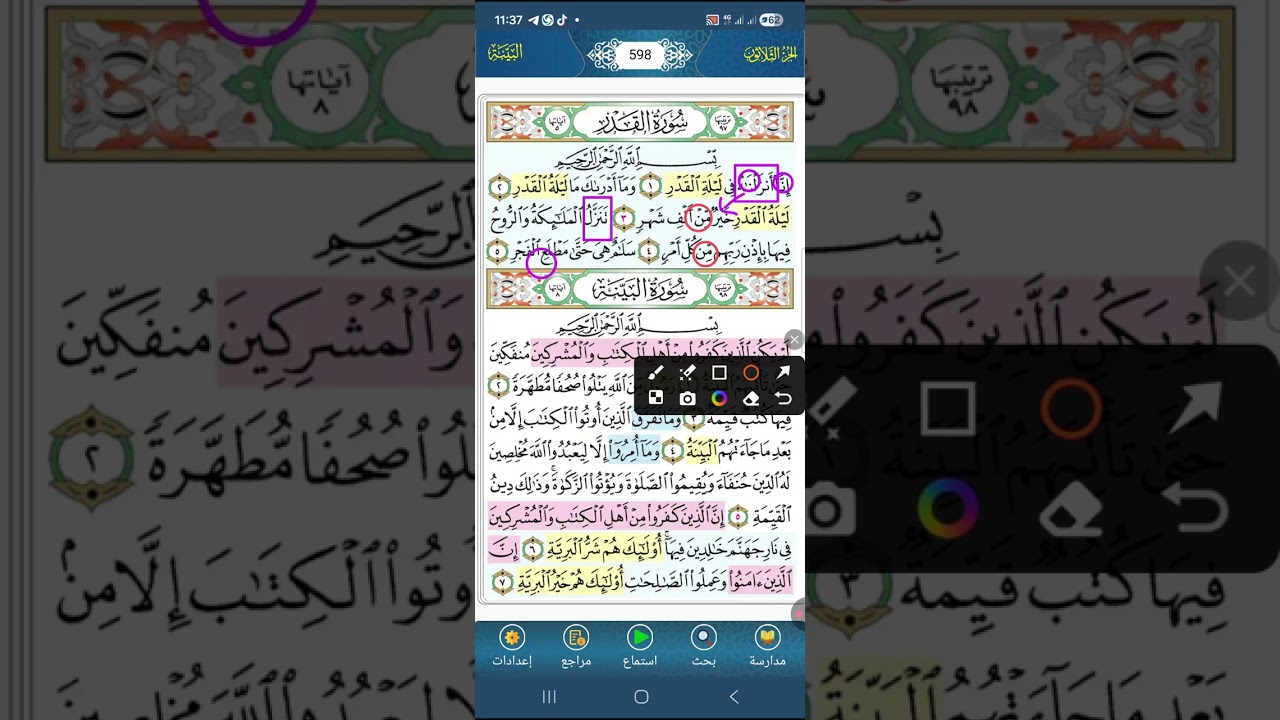 11:37
4G
62
الجزء الثلاثون
598
البينة
ترتيبها ٩٧
سورة القدر
آياتها ٥
بسم الله الرحمن الرحيم
إنا أنزلنه في ليلة القدر ١ وما أدرىك ما ليلة القدر ٢
ليلة القدر خير من ألف شهر ٣ تنزل الملئكة والروح
فيها بإذن ربهم من كل أمر ٤ سلم هي حتى مطلع الفجر ٥
ترتيبها ٩٨
سورة البينة
آياتها ٨
بسم الله الرحمن الرحيم
لم يكن الذين كفروا من أهل الكتب والمشركين منفكين
من الله يتلوا صحفا مطهرة ٢
فيها كتب قيمة ٣ وما تفرق الذين أوتوا الكتب إلا من
بعد ما جاءتهم البينة ٤ وما أمروا إلا ليعبدوا الله مخلصين
له الدين حنفاء ويقيموا الصلوة ويؤتوا الزكوة وذلك دين
القيمة ٥ إن الذين كفروا من أهل الكتب والمشركين
في نار جهنم خلدين فيها أولئك هم شر البرية ٦ إن
الذين ءامنوا وعملوا الصلحت أولئك هم خير البرية ٧
مدارسة
بحث
استماع
مراجع
إعدادات